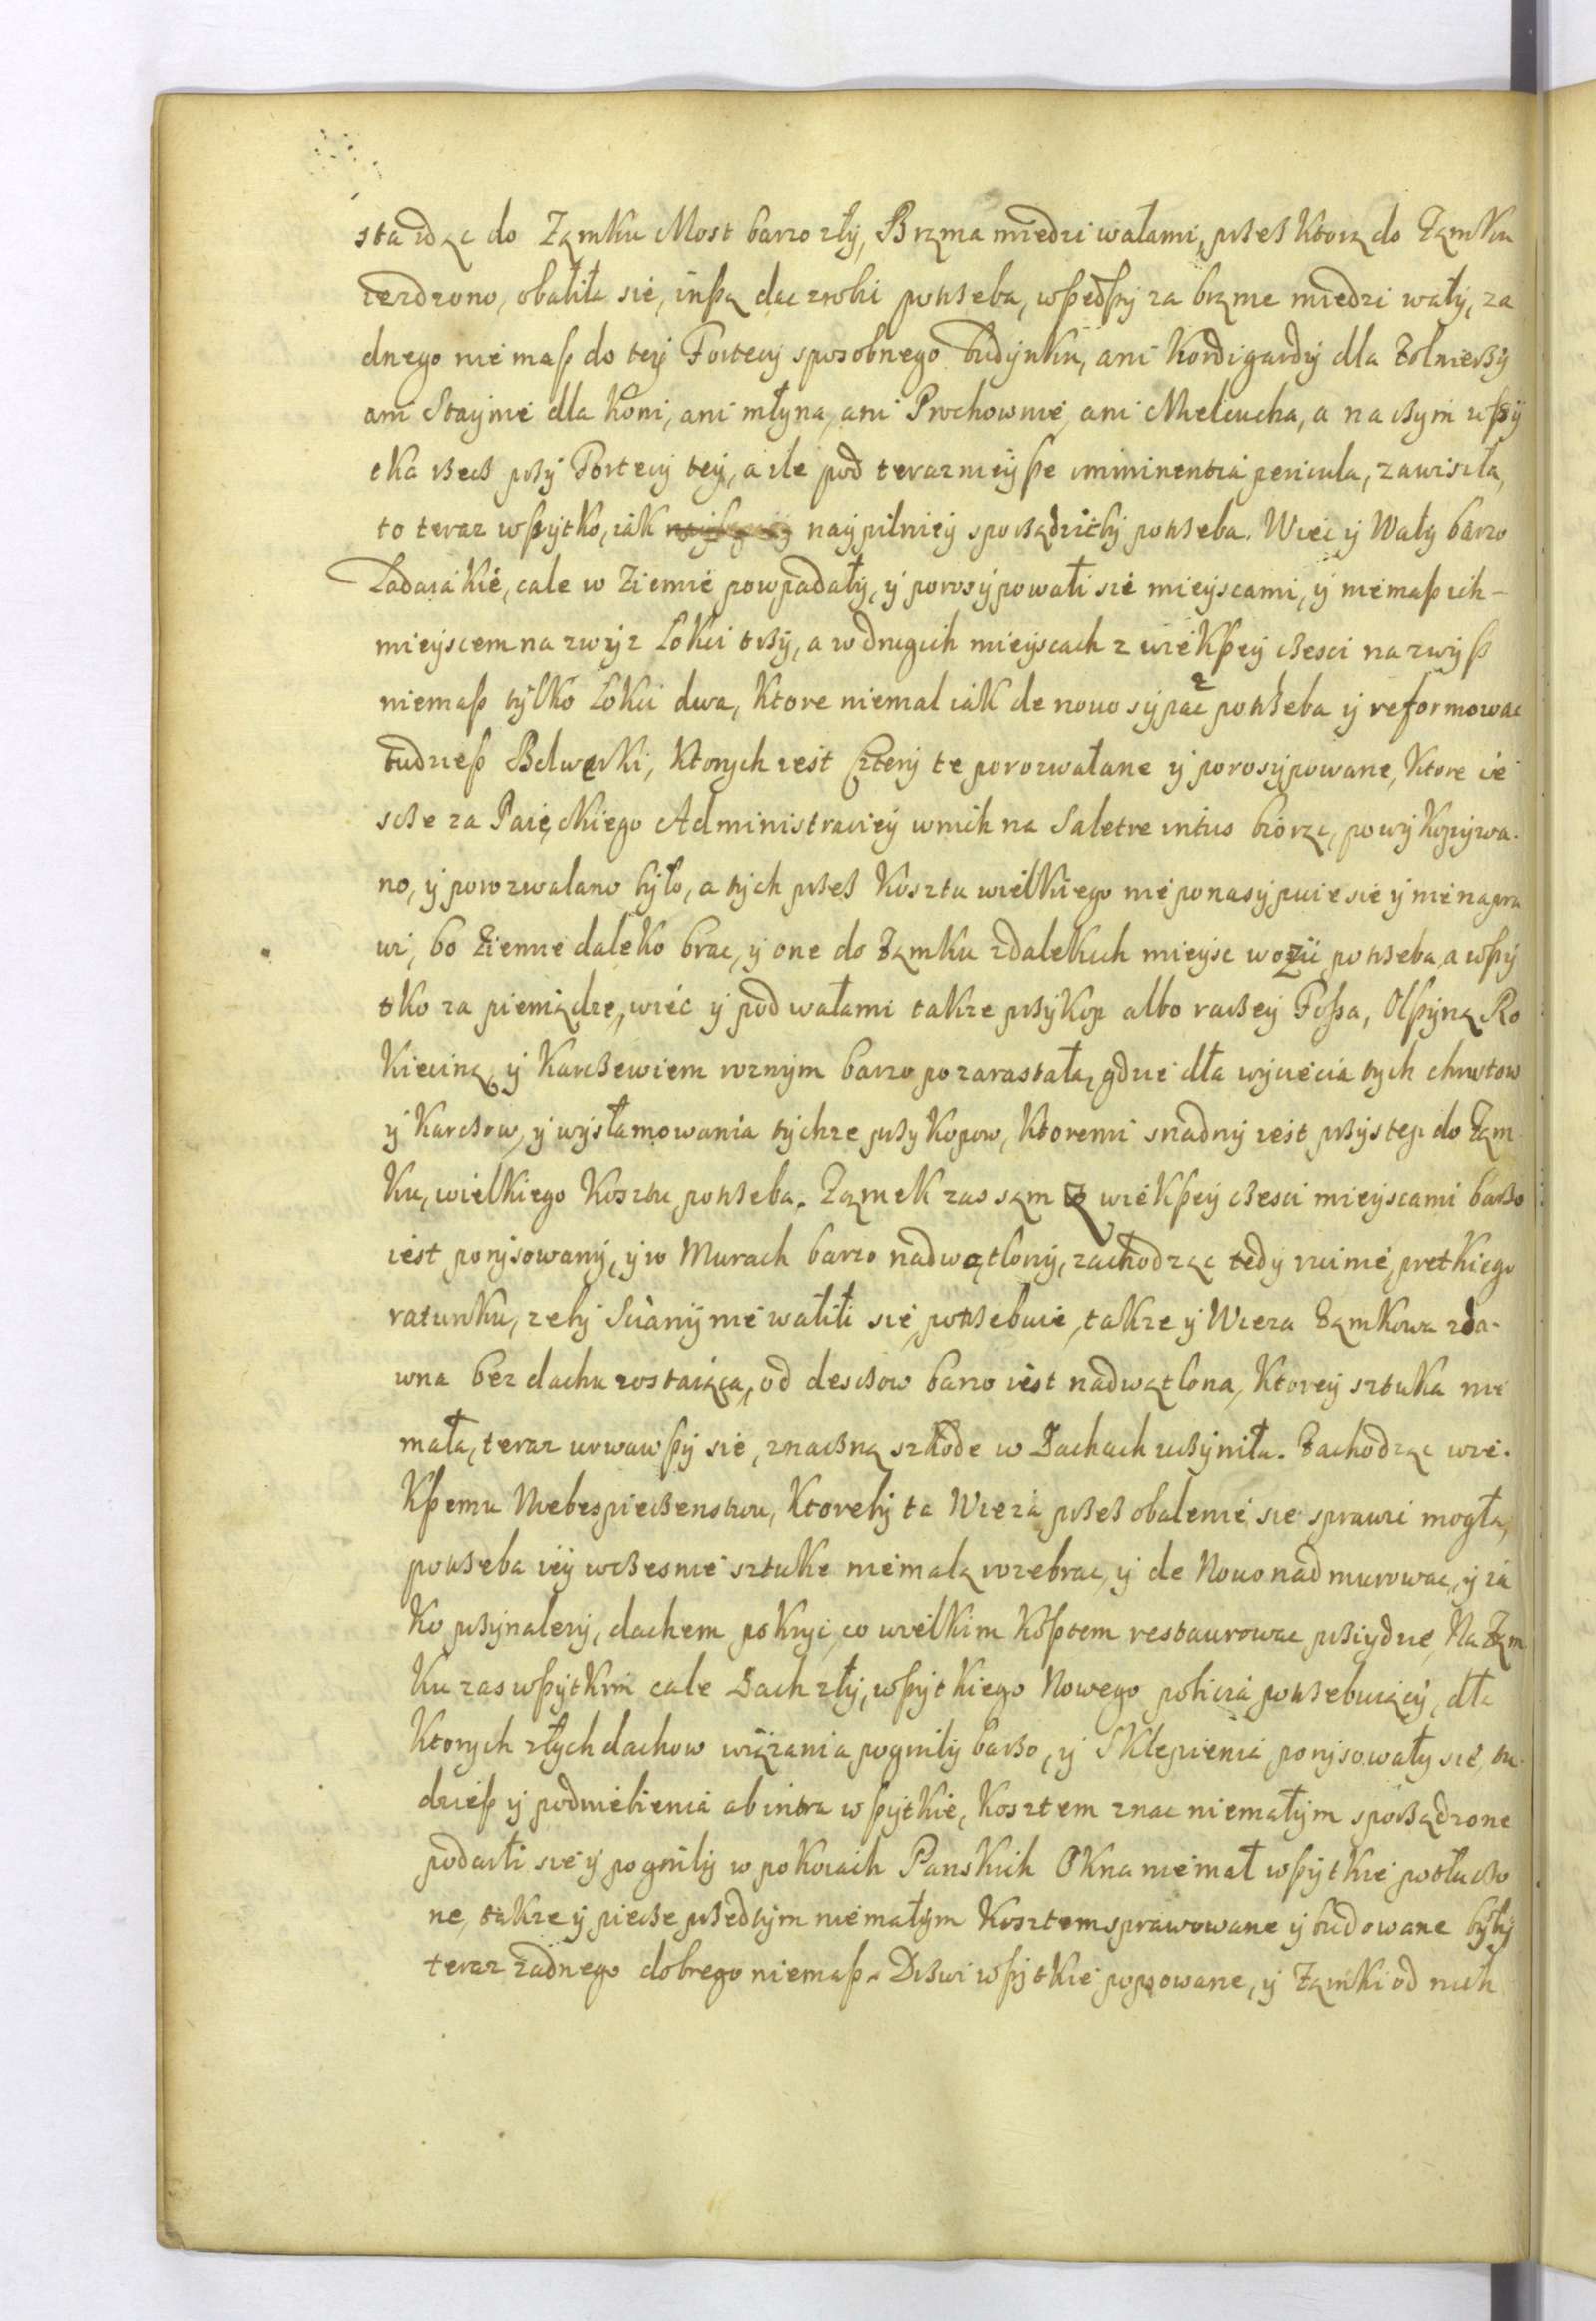 sta idąc do Zamku Most barzo zły, Brama miedzi wałami, przeß Ktorą do Zamku
iezdzono, obaliła sie, inßą dac zrobi potrzeba, wßedßy za bramę miedzi wały, za
dnego nie maß do tey Fortecy sposobnego budynku, ani Kordigardy dla Zołnierzy
ani Staynie dla Koni, ani młyna, ani Prochownie, ani Mielcucha, a na czym wßy
tka rzecz przy Fortecy tey, a ile pod terazniejße imminentia pericula, zawisła,
to teraz wßytko, iak naypilniey sporządzićby potrzeba. Wiec y Wały barzo
Ladaiakie, cale w Ziemię powpadały, y porosypowali sie mieyscami, y niemaß ich
mieyscem na zwyz Lokci trzy, a w drugich mieyscach z wiekßey czesci na zwyß
niemaß tylko Lokci dwa, Ktore niemal iak de nouo sypac potrzeba y reformowac
tudzieß Belwarki, Ktorych iest Cztery te porozwalane y porosypowane, Ktore ie
scze za Paięckiego Administraciey wnich na Saletre intus biorąc, powykopywa-
no, y porozwalano było, a tych przeß Kosztu wielkiego nie ponasypuie sie y nie napra
wi, bo Ziemie daleko brac, y one do Zamku zdalekich mieysc wozić potrzeba, a wßy
tko za pieniądze, wiéc y pod wałami takze przykop albo raczey Foßa, Olßyną Ro
Kieciną y Karczewiem roznym barzo pozarastała, gdzie dla wyciecia tych chrustow
y Karczow, y wysłamowania tychze przykopow, Ktoremi snadny iest przystep do Zam
Ku, wielkiego Kosztu potrzeba. Zamek zas sam z wiekßey czesci mieyscami barzo
iest porysowany, y w Murach barzo nadwątlony, zachodząc tedy ruinie, pretkiego
ratunku, zeby Sciany nie waliłi sie, potrzebuie, takze y Wieza Zamkowa zda-
wna bez dachu zostaiąca, od desczow barzo iest nadwątlona, Ktorey sztuka nie
mała, teraz urwawßy sie, znaczną szkode w Dachach uczyniła. Zachodząc wie-
Kßemu Niebespieczenstwu, Ktoreby ta Wieza przeß obalenie sie sprawi mogła,
potrzeba iey wczesnie sztuke niemałą rozebrac, y de Nouo nadmurowac, y ia
Ko przynalezy, dachem pokryc, co wielkim Koßtem restaurowac przyidzie, Na Zam
Ku zas wßytkim cale Dach zły, wßytkiego Nowego pobicia potrzebuiący, dla
Ktorych złych dachow wiązania pogniły barzo, y Sklepienia porysowały sie, tu-
dzieß y podniebienia ab intra wßytkie, Kosztem znac niemałym sporządzone
podarli sie y pogniły w pokoiach Panskich Okna niemal wßytkie potłuczo
ne, takze y piecze przedtym niemałym Kosztem sprawowane y budowane były
teraz zadnego dobrego niemaß. Drzwi wßytkie popsowane, y Zamki od nich